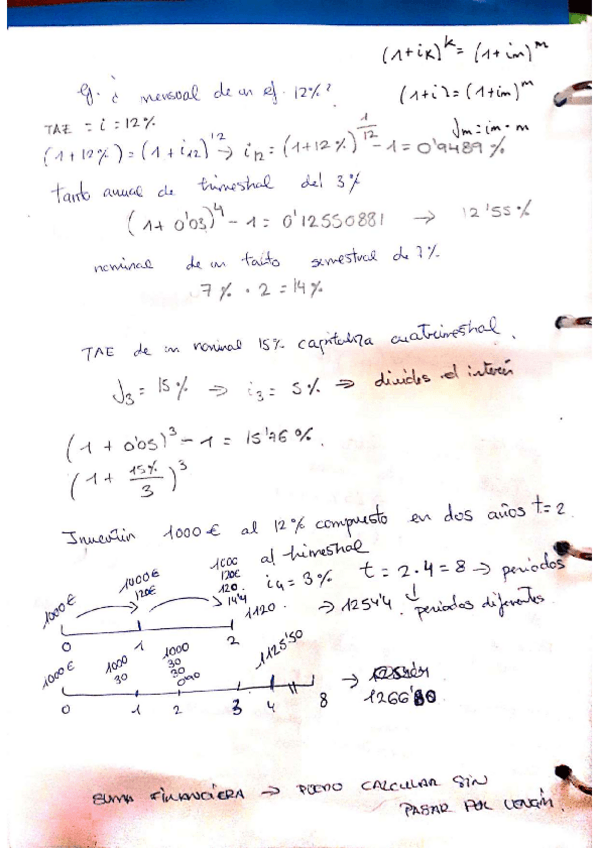 (1+ik)^k = (1+im)^m
Ej. i mensual de un ef. 12%?
(1+i) = (1+im)^m
TAE = i = 12%
Jm = im · m
(1+12%) = (1+i12)^12 → i12 = (1+12%)^1/12 - 1 = 0'9489%
tanto anual de trimestral del 3%
(1+0'03)^4 - 1 = 0'12550881 → 12'55%
nominal de un tanto semestral de 7%
7% · 2 = 14%
TAE de un nominal 15% capitaliza cuatrimestral.
J3 = 15% ⇒ i3 = 5% ⇒ divides el interés
(1 + 0'05)^3 - 1 = 15'76%.
(1 + 15%/3)^3
Invertir 1000€ al 12% compuesto en dos años t=2
al trimestral
i4 = 3% t = 2·4 = 8 → periodos
1000€ 1000€ 120€ 1000 120€ 120. 14'4 1120. → 1254'4. periodos diferentes
0 1 2
1000€ 1000 30 1000 30 30 0'90 1125'50 →
1266'80
0 1 2 3 4 8
SUMA FINANCIERA → PUEDO CALCULAR SIN
PASAR POR